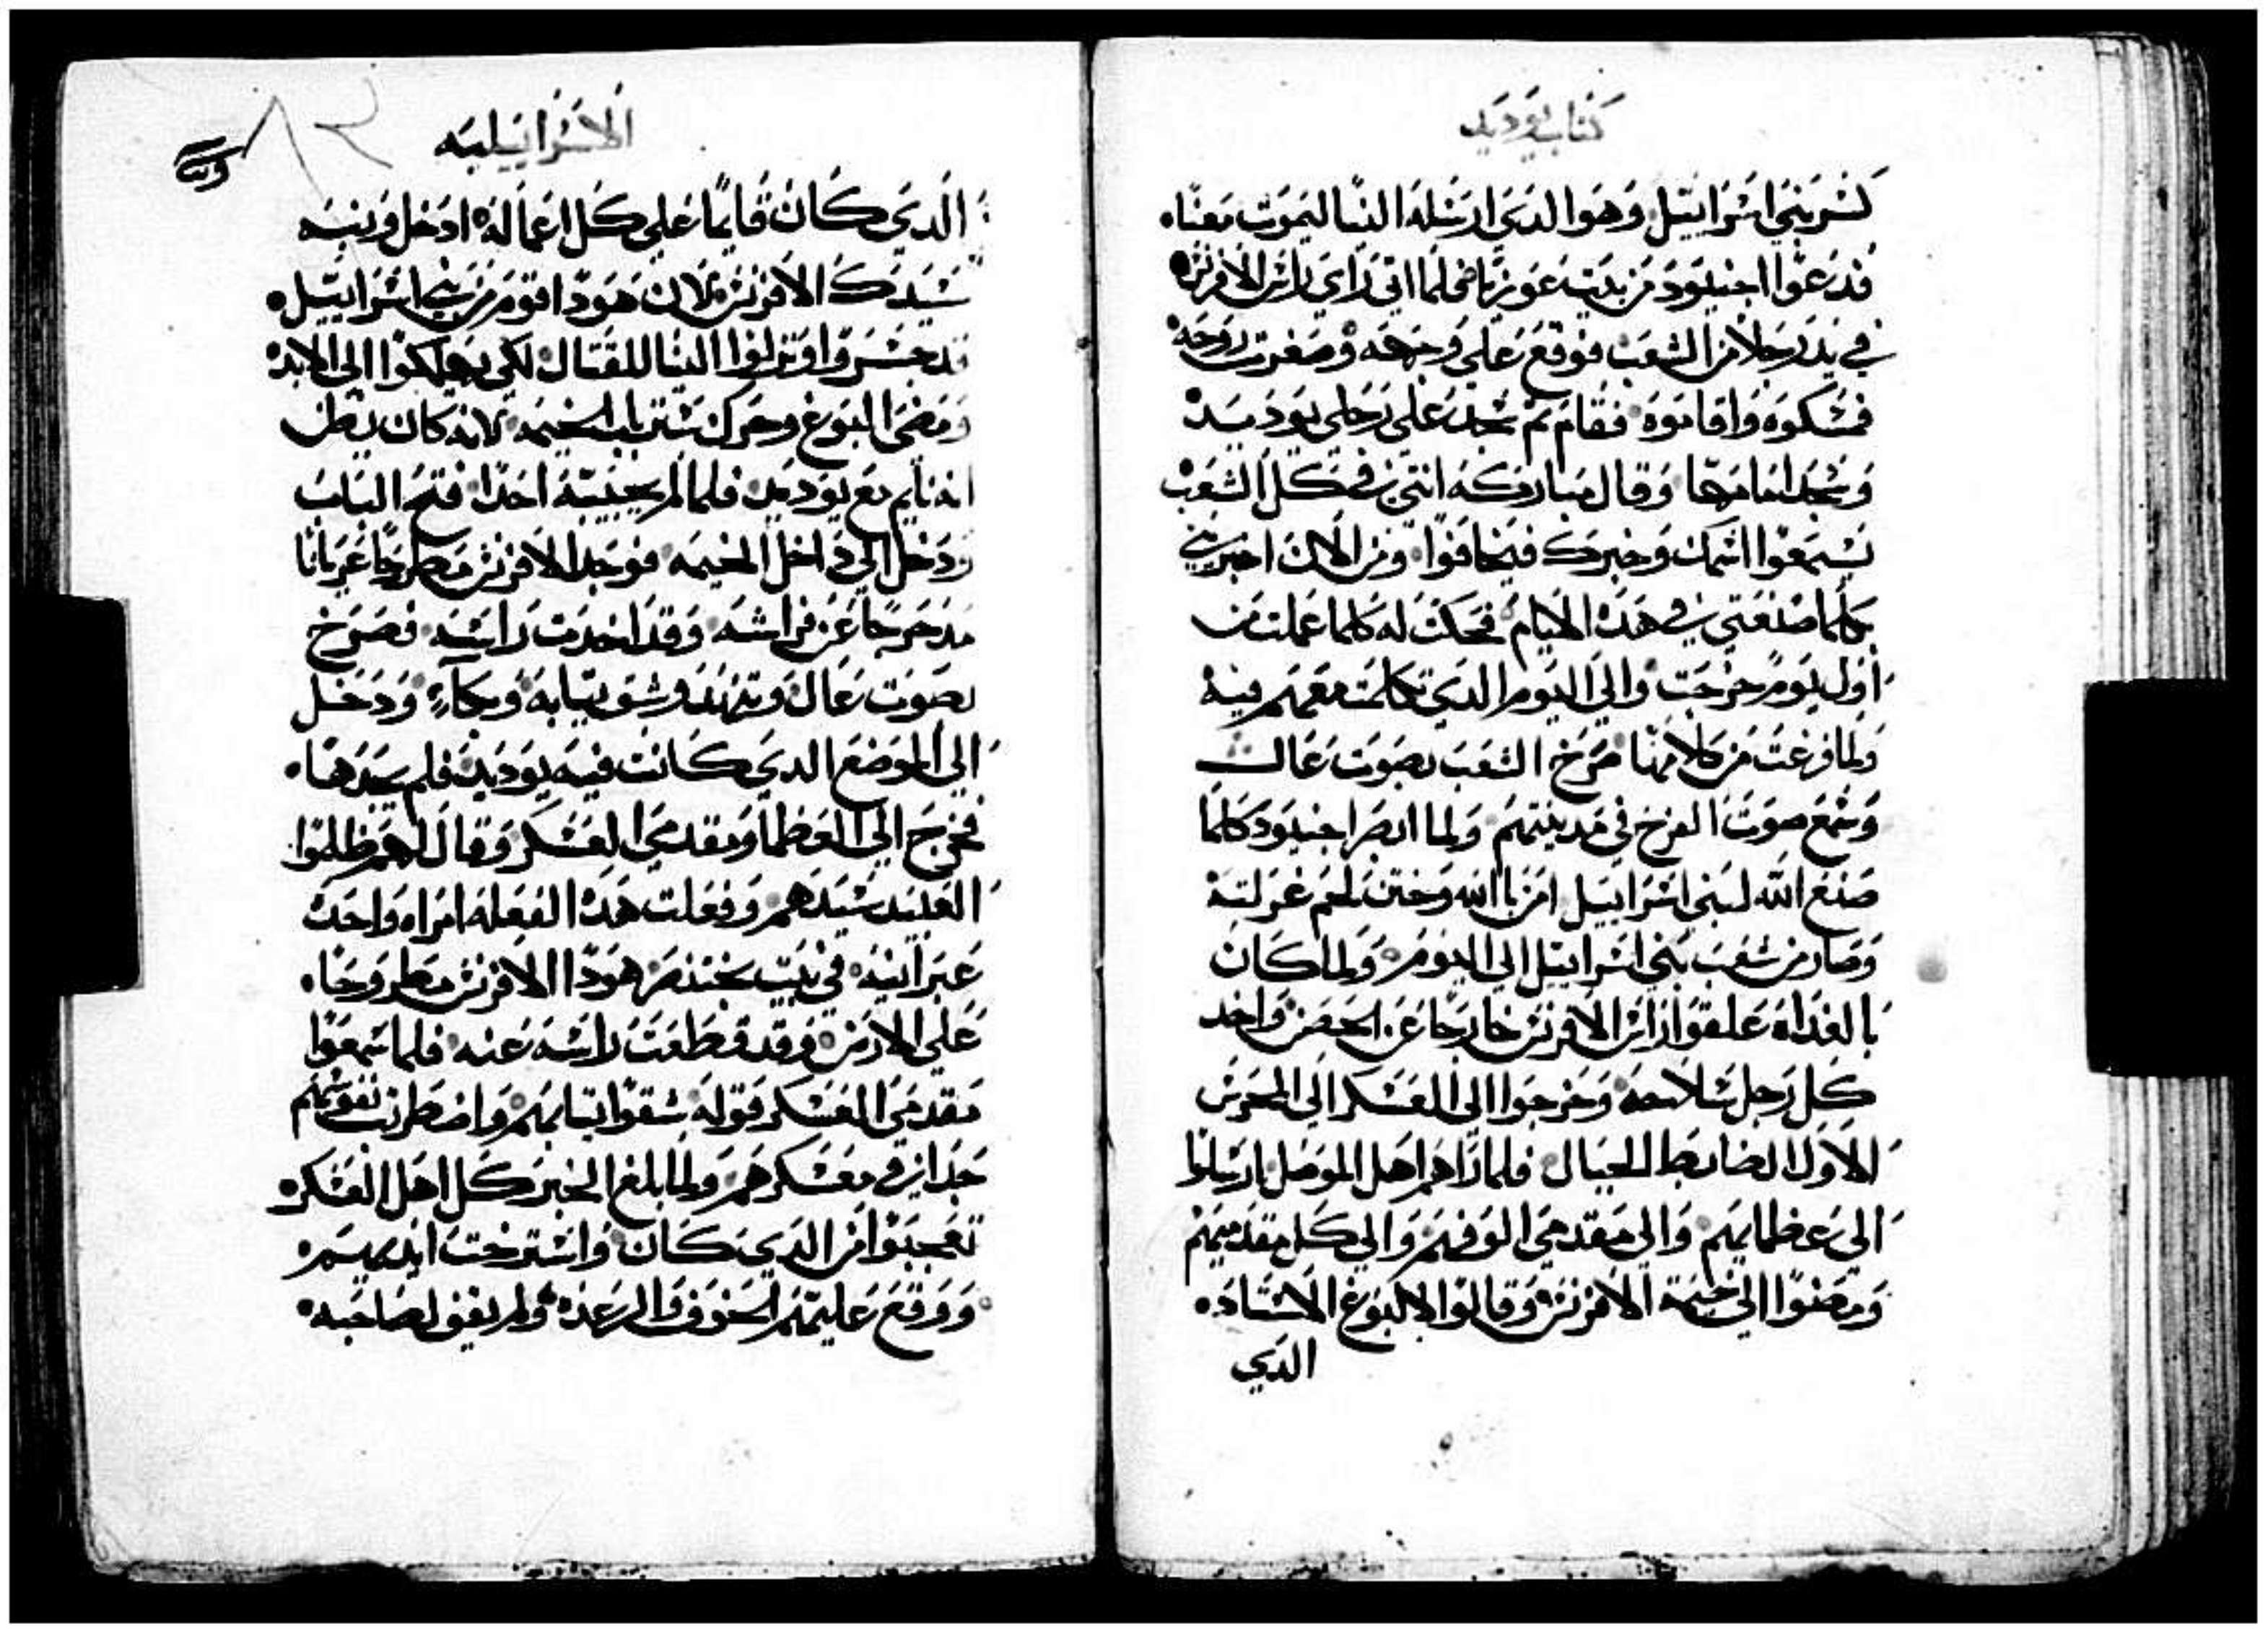 كتاب يوديد
كسر بني اسراييل وهوا الدي ارسله الينا ليموت معنا
فدعوا اجنيود من بيت عوزيا فلما اتي راي راس الافرنس
في يد رجلا من الشعب فوقع علي وجهه وصغرت روحه
فمسكوه واقاموه فقام ثم سجد علي رجلي يوديد
وسجد امامها وقال مباركه انتي في كل الشعب
يسمعوا اسمك وخبرك فيخافوا ومن الان اخبريني
كلما صنعتي في هده الايام فحكت له كلما عملت من
اول يوم خرجت والي اليوم الدي تكلمت معهم فيه
ولما فرغت من كلامها صرخ الشعب بصوت عال
وسمع صوت الفرح في مدينتهم ولما ابصر اجنيود كلما
صنع الله لبني اسراييل امن بالله وختن لحم غرلته
وصار من شعب بني اسراييل الي اليوم ولما كان
بالغداه علقوا راس الافرنس خارجا عن الحصن واخد
كل رجل سلاحه وخرجوا الي العسكر الي الحرس
الاول الضابط الجبال فلما راهم اهل الموصل ارسلوا
الي عظمايهم والي مقدمي الوفهم والي كل مقدميهم
ومضوا الي خيمة الافرنس وقالوا لالبوغ الاستاد
الدي
الاسراييليه
الدي كان قايما علي كل اعماله ادخل ونبه
سيدك الافرنس لان هودا قوم من بني اسراييل
قد جسروا ونزلوا الينا للقتال لكي يهلكوا الي الابد
ومضي البوغ وحرك ستر باب الخيمه لانه كان يظن
انه نايم مع يوديد فلما لم يجيبه احدا فتح الباب
ودخل الي داخل الخيمه فوجد الافرنس مطروحا عريانا
مدحرجا عن فراشه وقد اخدت راسه فصرخ
بصوت عال وتنهد وشق تيابه وبكاء ودخل
الي الموضع الدي كانت فيه يوديد فلم يجدها
فخرج الي العظما ومقدمي العسكر وقال لهم ظلموا
العبيد سيدهم وفعلت هده الفعله امراه واحده
عبرانيه في بيت بختنصر هودا الافرنس مطروحا
علي الارض وقد قطعت راسه عنه فلما سمعوا
مقدمي العسكر قوله شقوا تيابهم واضطربت نفوسهم
جدا في معسكرهم ولما بلغ الخبر كل اهل العسكر
تعجبوا من الدي كان واسترخت ايديهم
ووقع عليهم الخوف والرعده ولم يفق لصاحبه